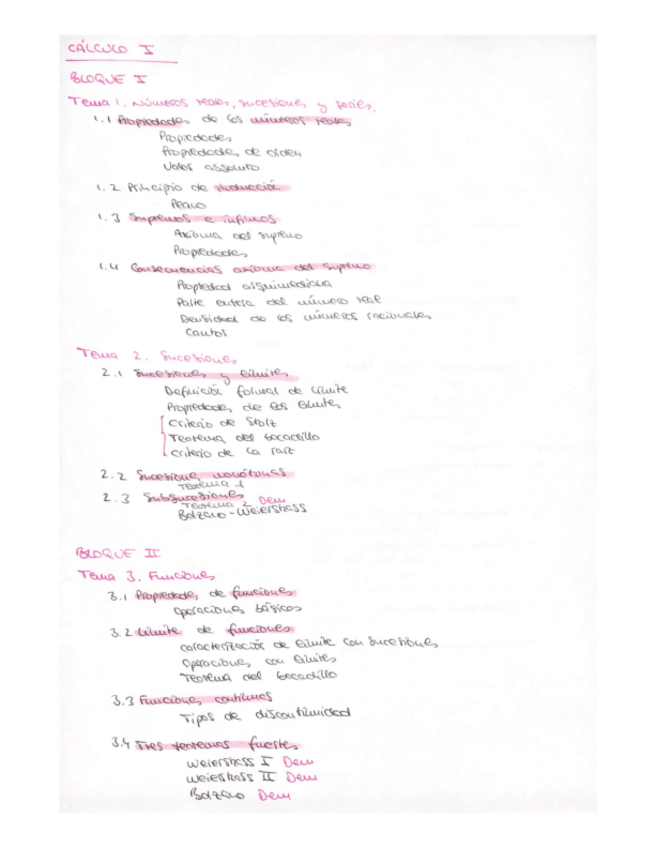 CÁLCULO I
BLOQUE I
Tema 1. Números reales, sucesiones y series.
1.1 Propiedades de los números reales
Propiedades
Propiedades de orden
Valor absoluto
1.2 Principio de inducción
Peano
1.3 Supremos e ínfimos
Axioma del supremo
Propiedades
1.4 Consecuencias axioma del supremo
Propiedad arquimediana
Parte entera del número real
Densidad de los números racionales
Cantor
Tema 2. Sucesiones
2.1 Sucesiones y límites
Definición formal de límite
Propiedades de los límites
Criterio de Stolz
Teorema del bocadillo
Criterio de la raíz
2.2 Sucesiones monótonas
Teorema 1
2.3 Subsucesiones
Teorema 2 Dem
Bolzano-Weierstrass
BLOQUE II
Tema 3. Funciones
3.1 Propiedades de funciones
Operaciones básicas
3.2 Límite de funciones
Caracterización de límite con sucesiones
Operaciones con límites
Teorema del bocadillo
3.3 Funciones continuas
Tipos de discontinuidad
3.4 Tres teoremas fuertes
Weierstrass I Dem
Weierstrass II Dem
Bolzano Dem